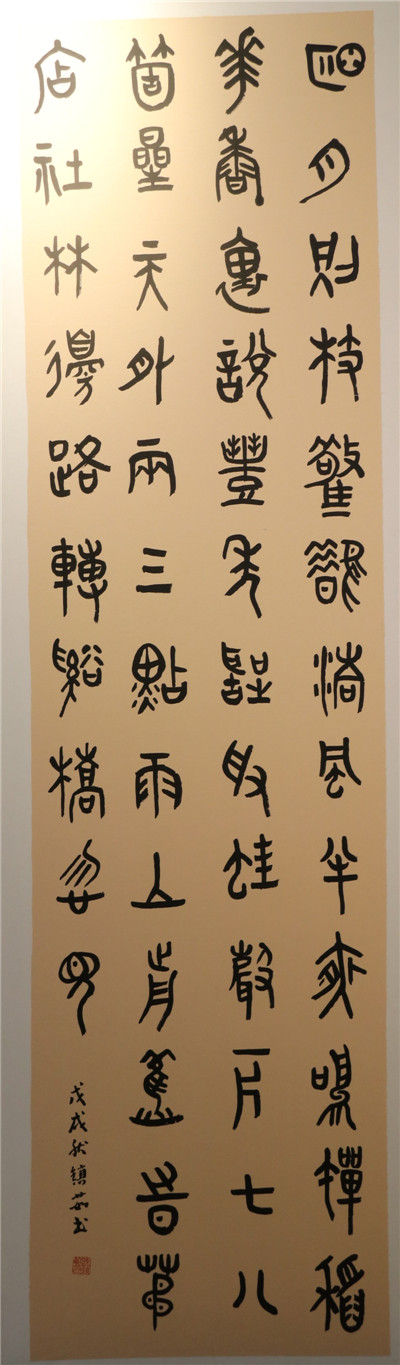 明月別枝驚鵲清風半夜鳴蟬稻
華香裏說豐年聽取蛙聲一片七八
箇星天外兩三點雨山前舊時茅
店社林邊路轉谿橋忽見
戊戌秋鎮茹书